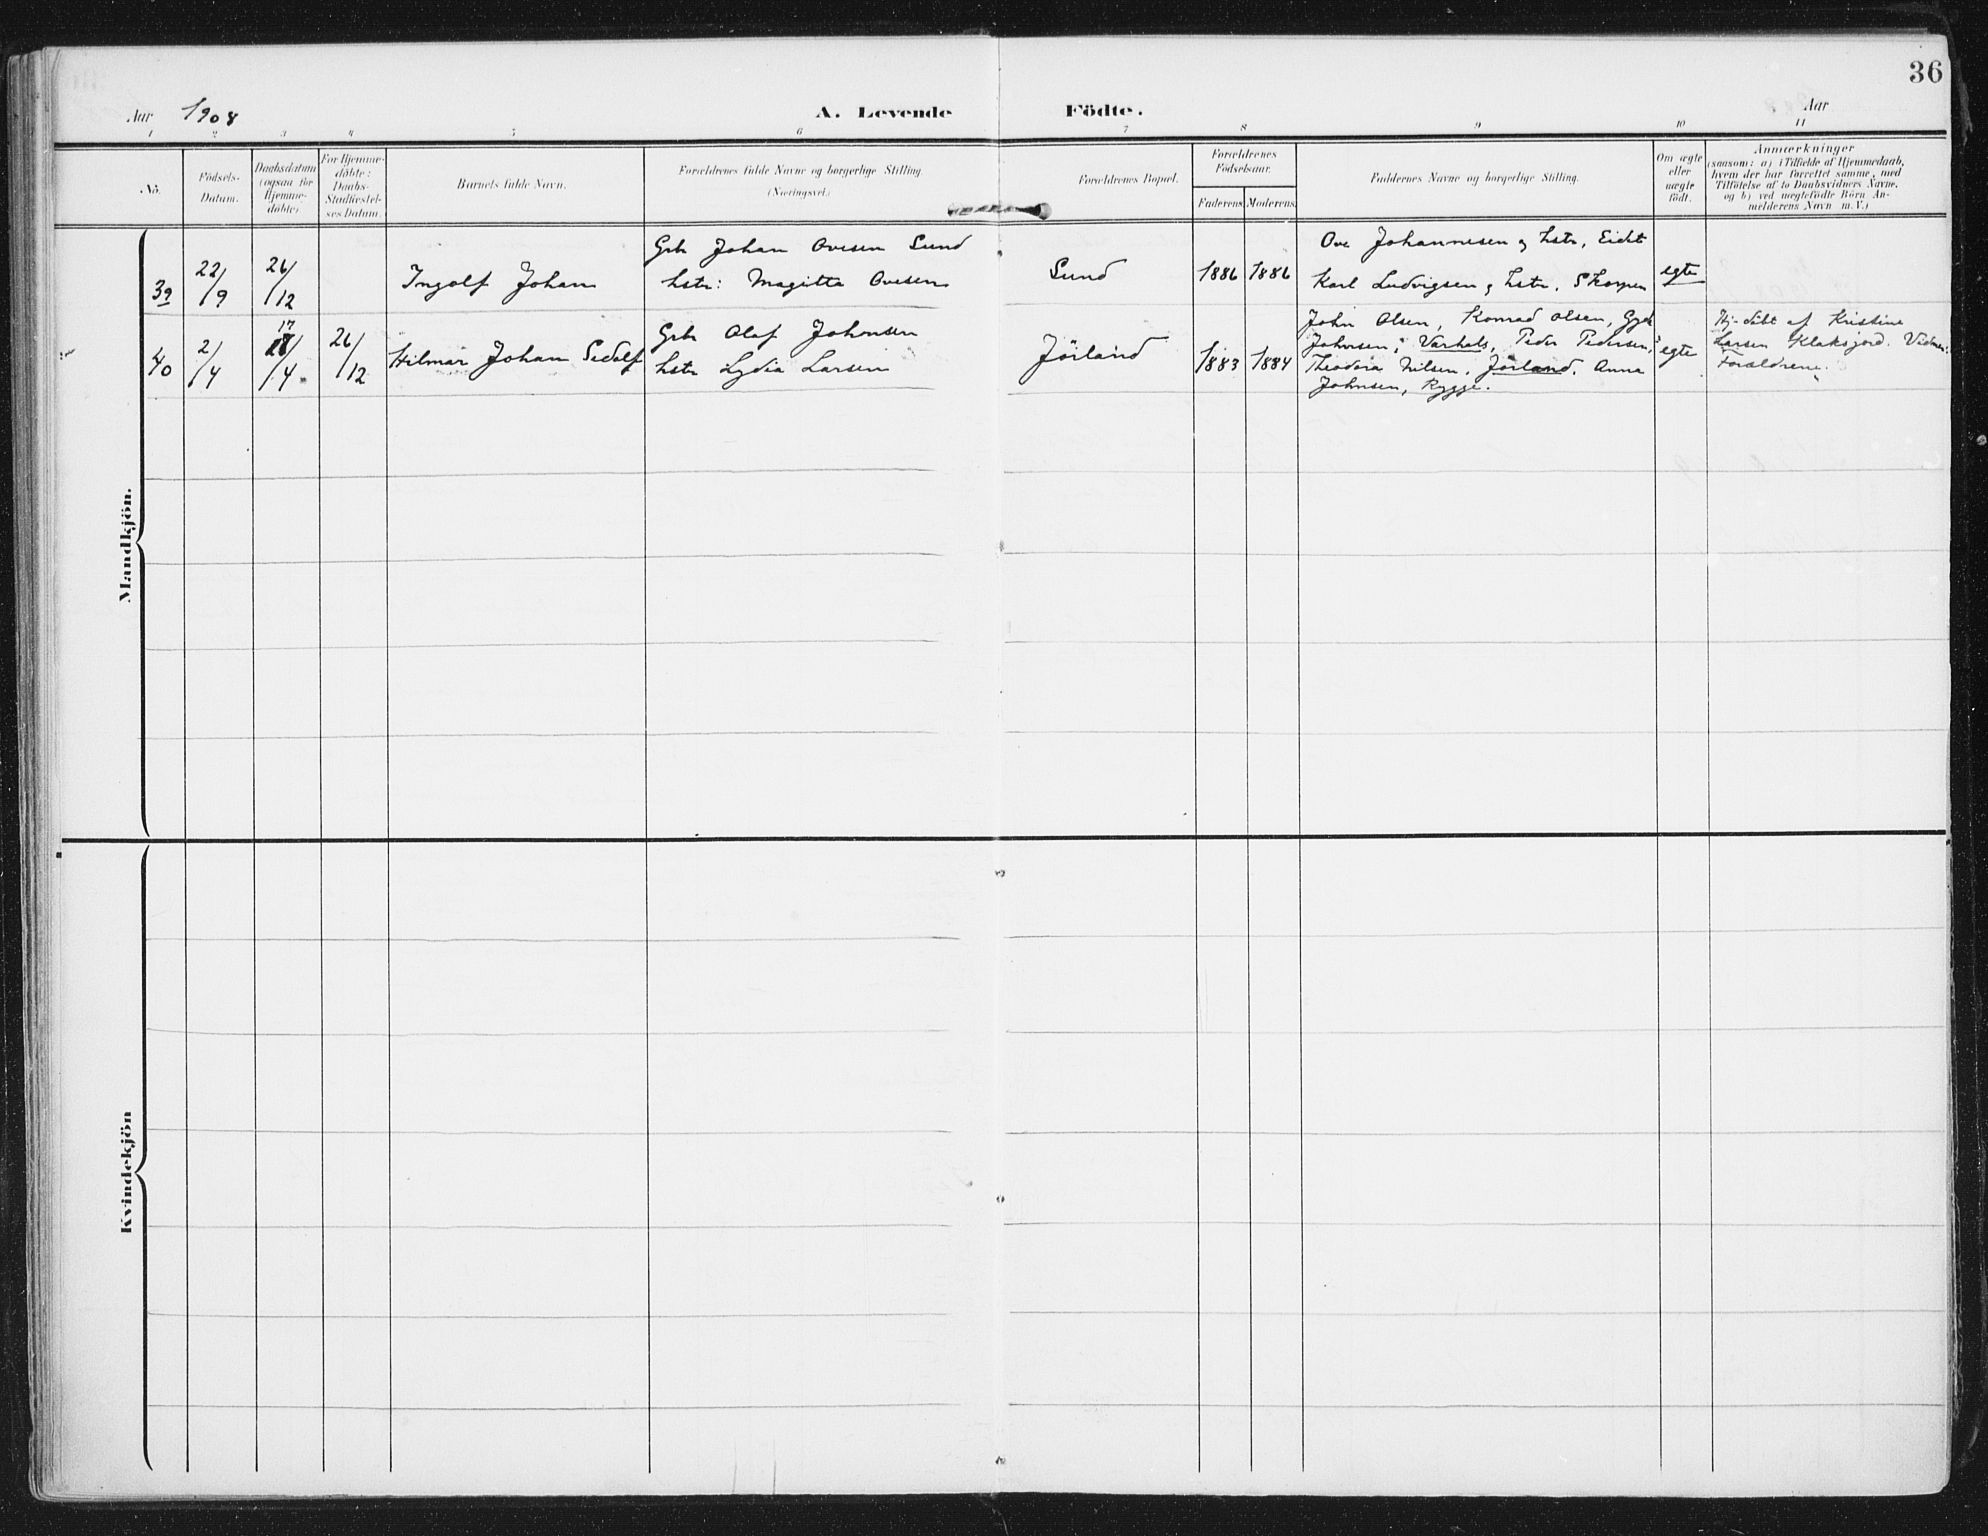 36
Aar 1908
A. Levende Födte.
Aar
1 2 3 4 5 6 7 8 9 10 11
No.
Födsels-
Datum.
Daabsdatum
(ogsaa for
Hjemme-
döbte).
For Hjemme-
döbte:
Daabs-
Stadfæstel-
ses Datum.
Barnets fulde Navn.
Forældrenes fulde Navne og borgerlige Stilling
(Næringsvei.)
Forældrenes Bopæl.
Forældrenes
Födselsaar.
Faderens Moderens
Faddernes Navne og borgerlige Stilling.
Om ægte
eller
uægte
födt.
Anmærkninger
(saasom: a) i Tilfælde af Hjemmedaab,
hvem der har forrettet samme, med
Tilföielse af to Daabsvidners Navne.
og b) ved uægtefödte Börn An-
melderens Navn m. V.)
Mandkjön.
39
22/9
26/12
Ingolf Johan
Gbr Johan Ovesen Sund
hstr: Magitta Ovesen
Sund
1886 1886
Ove Johannesen og hstr, Eidet
Karl Ludvigsen og hstr, Skorpen
egte
40
2/4
17/4
26/12
Hilmar Johan Sedolf
Gbr Olaf Johnsen
hstr Lydia Larsen
Jörland
1883 1884
John Olsen, Konrad Olsen,
Johnsen, Varhols, Peder Pedersen,
Theodora Nilsen, Jörland, Anna
Johnsen, Rygge.
egte
Hj-döbt af Kristine
Larsen Klaksjord.
Forældrene.
Kvindekjön